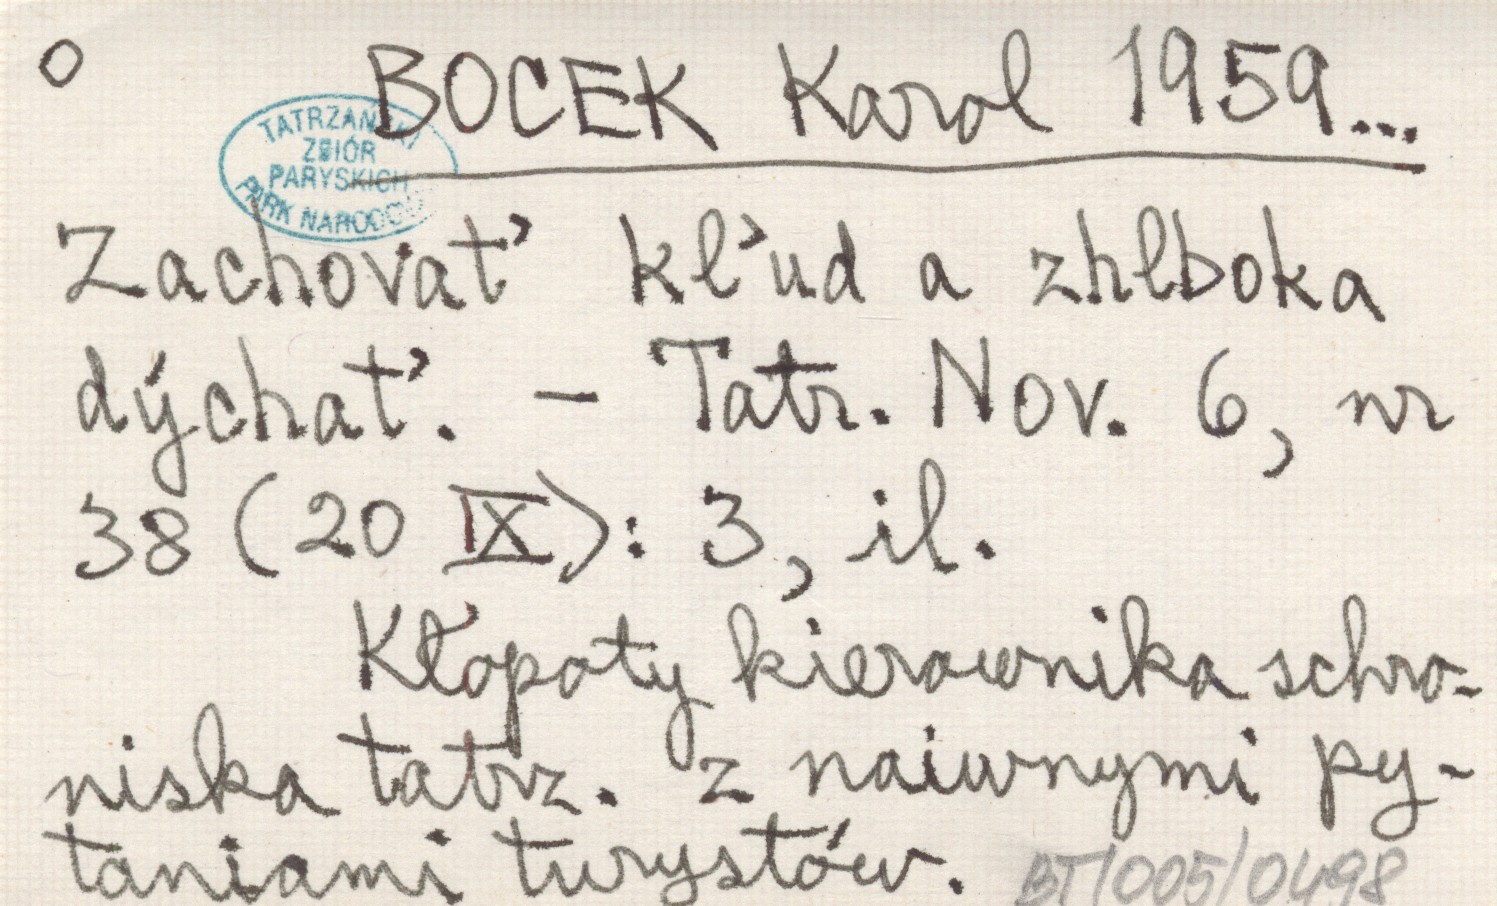 O BOCEK Karol 1959...
TATRZAŃSKI
ZBIÓR
PARYSKICH
PARK NARODOWY
Zachovať kľud a zhlboka
dýchať. - Tatr. Nov. 6, nr
38 (20 IX): 3, il.
Kłopoty kierownika schro-
niska tatrz. z naiwnymi py-
taniami turystów.
BT/005/0498